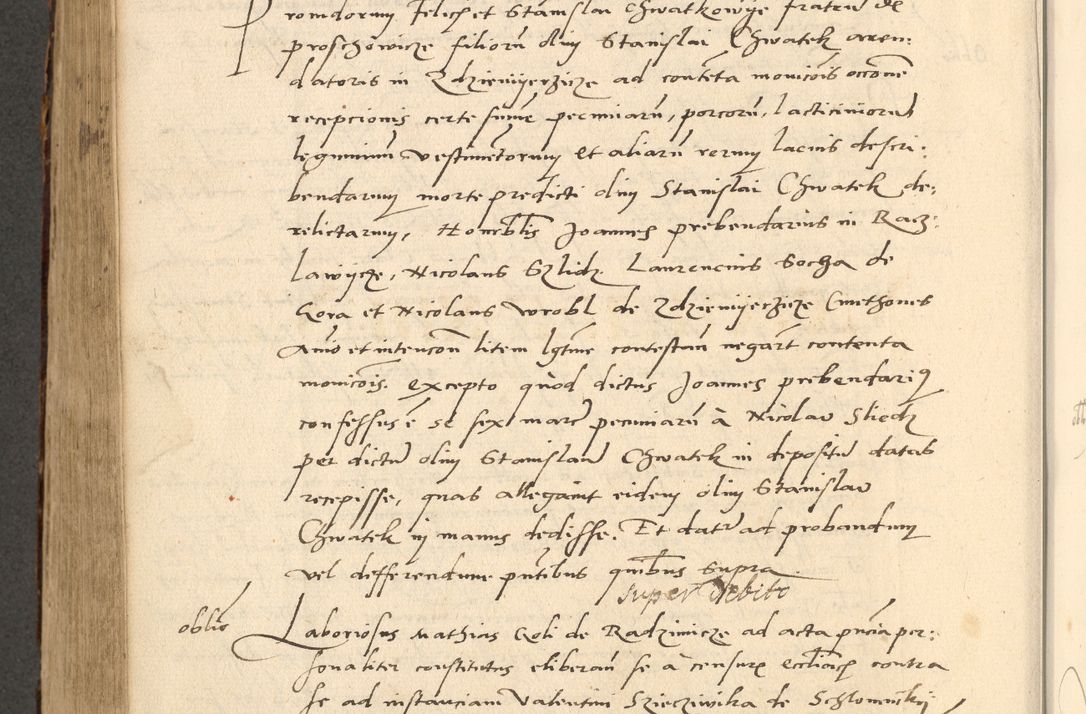 Promdorum Felicis et Stanislai Chwatkowye fratrum de
proschowicze filiorum olim Stanislai Chwatek aren:
datoris in Zdzieniyerzicze ad contenta monicois occone
recepcionis certe sume pecuniaru, porcoru, lacticiniorum
leguminum vestimetorum et aliaru rerum lacius descri:
bendarum morte predicti olim Stanislai Chwatek de:
relictarum, Honeblis Joannes prebendarius in Racz:
lawycze, Nicolaus Szlidz. Laurencius Socha de
Gora et Nicolaus Wrobl de Zdzieniyerzicze Cmethones
Animo et intencon litem lgtme contestan negart contenta
monicois. Excepto quod dictus Joannes prebendari9
confessus e se sex marc pecuniaru à Nicolao Sliedz
per dictu olim Stanislau Chwatek in depositu datas
recepisse, quas allegauit eidem olim Stanislao
Chwatek in manus dedisse. Et datr ad probandum
vel defferendum pntibus quibus supra
super debito
oblio
Laboriosus Mathias Goli de Radzimicze ad acta pncia per:
sonaliter constitutus eliberan se a censuris eccliacis contra
se ad instanciam Valentini Sziecziwika de Schlomniky